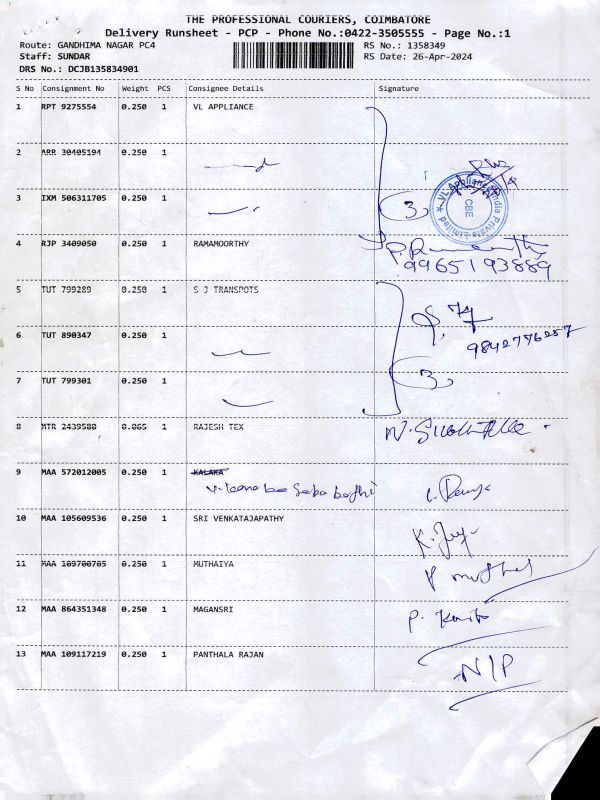 THE PROFESSIONAL COURIERS, COIMBATORE
Delivery Runsheet - PCP - Phone No.:0422-3505555 - Page No.:1
Route: GANDHIMA NAGAR PC4 RS No.: 1358349
Staff: SUNDAR RS Date: 26-Apr-2024
DRS No.: DCJB135834901
S No Consignment No Weight PCS Consignee Details Signature
1 RPT 9275554 0.250 1 VL APPLIANCE
2 ARR 30405194 0.250 1
3 IXM 506311705 0.250 1 3
VL Appliances India Private Limited ★ CBE
4 RJP 3409050 0.250 1 RAMAMOORTHY
9965193889
5 TUT 799289 0.250 1 S J TRANSPOTS
6 TUT 890347 0.250 1 9842776257
7 TUT 799301 0.250 1 3
8 MTR 2439580 0.065 1 RAJESH TEX
9 MAA 572012005 0.250 1 KALAKA
10 MAA 105609536 0.250 1 SRI VENKATAJAPATHY
11 MAA 109700705 0.250 1 MUTHAIYA
12 MAA 864351348 0.250 1 MAGANSRI
13 MAA 109117219 0.250 1 PANTHALA RAJAN N/P